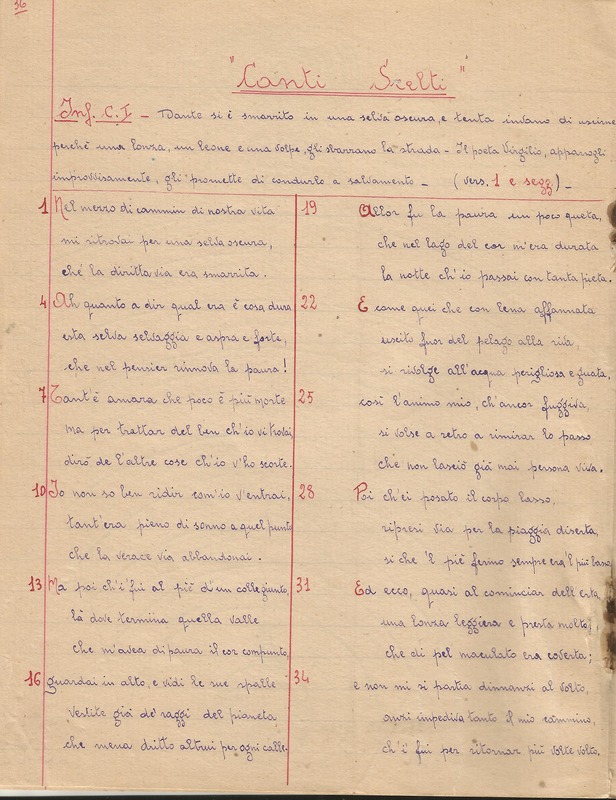 36
"Canti Scelti"
Inf. C. I — Dante si è smarrito in una selva oscura, e tenta invano di uscirne
perché una lonza, un leone e una volpe, gli sbarrano la strada — Il poeta Virgilio, apparsogli
improvvisamente, gli promette di condurlo a salvamento — (vers. 1 e segg) —
1 Nel mezzo di cammin di nostra vita
mi ritrovai per una selva oscura,
ché la diritta via era smarrita.
4 Ah quanto a dir qual era è cosa dura
esta selva selvaggia e aspra e forte,
che nel pensier rinnova la paura!
7 Tant'è amara che poco è più morte
ma per trattar del ben ch'io vi trovai
dirò de l'altre cose ch'io v'ho scorte.
10 Io non so ben ridir com'io v'entrai,
tant'era pieno di sonno a quel punto
che la verace via abbandonai.
13 Ma poi ch'i' fui al piè d'un colle giunto,
là dove termina quella valle
che m'avea di paura il cor compunto,
16 guardai in alto, e vidi le sue spalle
vestite già de' raggi del pianeta
che mena dritto altrui per ogni calle.
19 Allor fu la paura un poco queta,
che nel lago del cor m'era durata
la notte ch'io passai con tanta pieta.
22 E come quei che con lena affannata
uscito fuor del pelago alla riva,
si rivolge all'acqua perigliosa e guata,
25 così l'animo mio, ch'ancor fuggiva,
si volse a retro a rimirar lo passo
che non lasciò già mai persona viva.
28 Poi ch'ei posato il corpo lasso,
ripresi via per la piaggia diserta,
sì che 'l piè fermo sempre era 'l più basso,
31 Ed ecco, quasi al cominciar dell'erta,
una lonza leggiera e presta molto,
che di pel maculato era coverta;
34 e non mi si partia dinnanzi al volto,
anzi impediva tanto il mio cammino,
ch'i' fui per ritornar più volte volto.